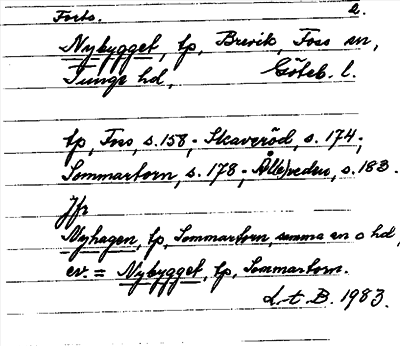 Forts. 2.
Nybygget, tp, Brevik, Foss sn,
Tunge hd, Göteb. l.
tp, Foss, s. 158, - Skaveröd, s. 174,
Sommartorn, s. 178, - s. 183.
Jfr
Nyhagen, tp, Sommartorn, samma sn o hd,
ev. = Nybygget, tp, Sommartorn.
L t B. 1983.